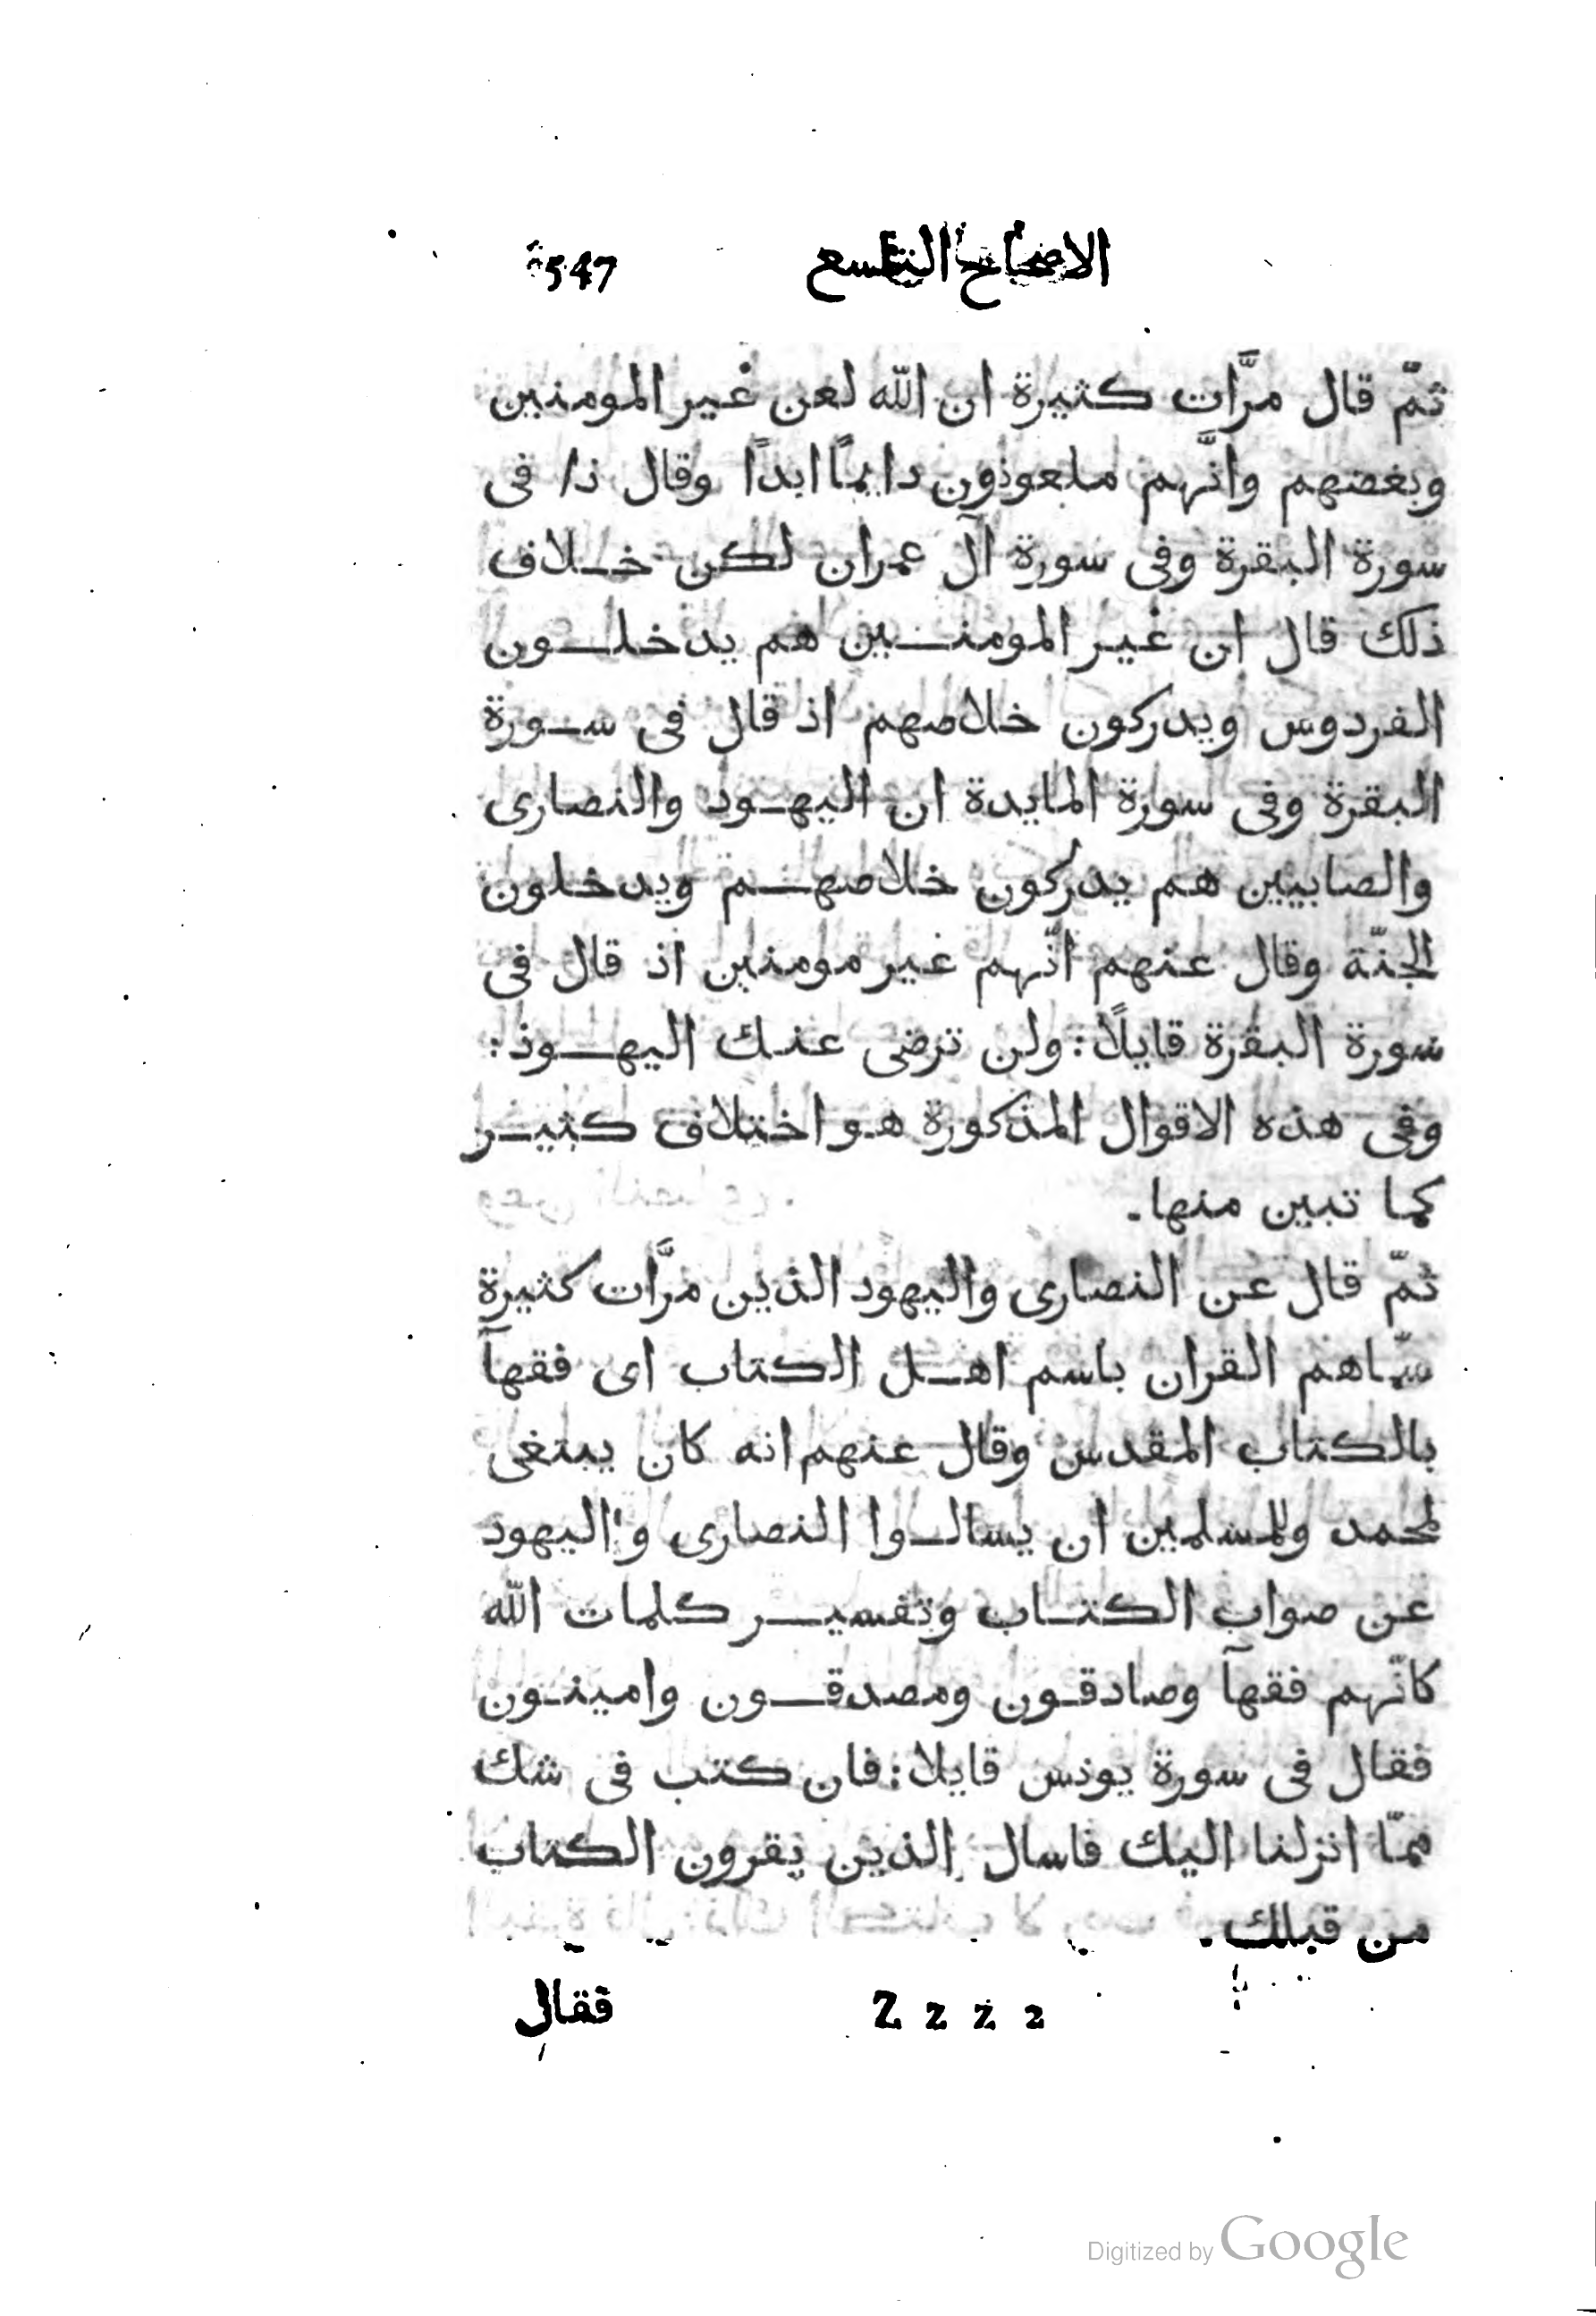 الاصحاح التاسع 547
ثمّ قال مرَّات كثيرة ان اللّه لعن غير المومنين
وبغضهم وانَّهم ملعونون دايمًا ابدًا وقال ذا فى
سورة البقرة وفى سورة آل عمران لكن خلاف
ذلك قال ان غير المومنين هم يدخلون
الفردوس ويدركون خلاصهم اذ قال فى سورة
البقرة وفى سورة المايدة ان اليهود والنصارى
والصابيين هم يدركون خلاصهم ويدخلون
الجنّة وقال عنهم انّهم غير مومنين اذ قال فى
سورة البقرة قايلًا: ولن ترضى عنك اليهود:
وفى هذه الاقوال المذكورة هو اختلاف كثير
كما تبين منها.
ثمّ قال عن النصارى واليهود الذين مرَّات كثيرة
سّماهم القران باسم اهل الكتاب اى فقهآ
بالكتاب المقدس وقال عنهم انه كان يبتغى
لمحمد وللمسلمين ان يسالوا النصارى واليهود
عن صواب الكتاب وتفسير كلمات اللّه
كانّهم فقهآ وصادقون ومصدقون وامينون
فقال فى سورة يونس قايلا: فان كتب فى شك
ممّا انزلنا اليك فاسال الذين يقرون الكتاب
من قبلك.
Z z z z فقال
Digitized by Google